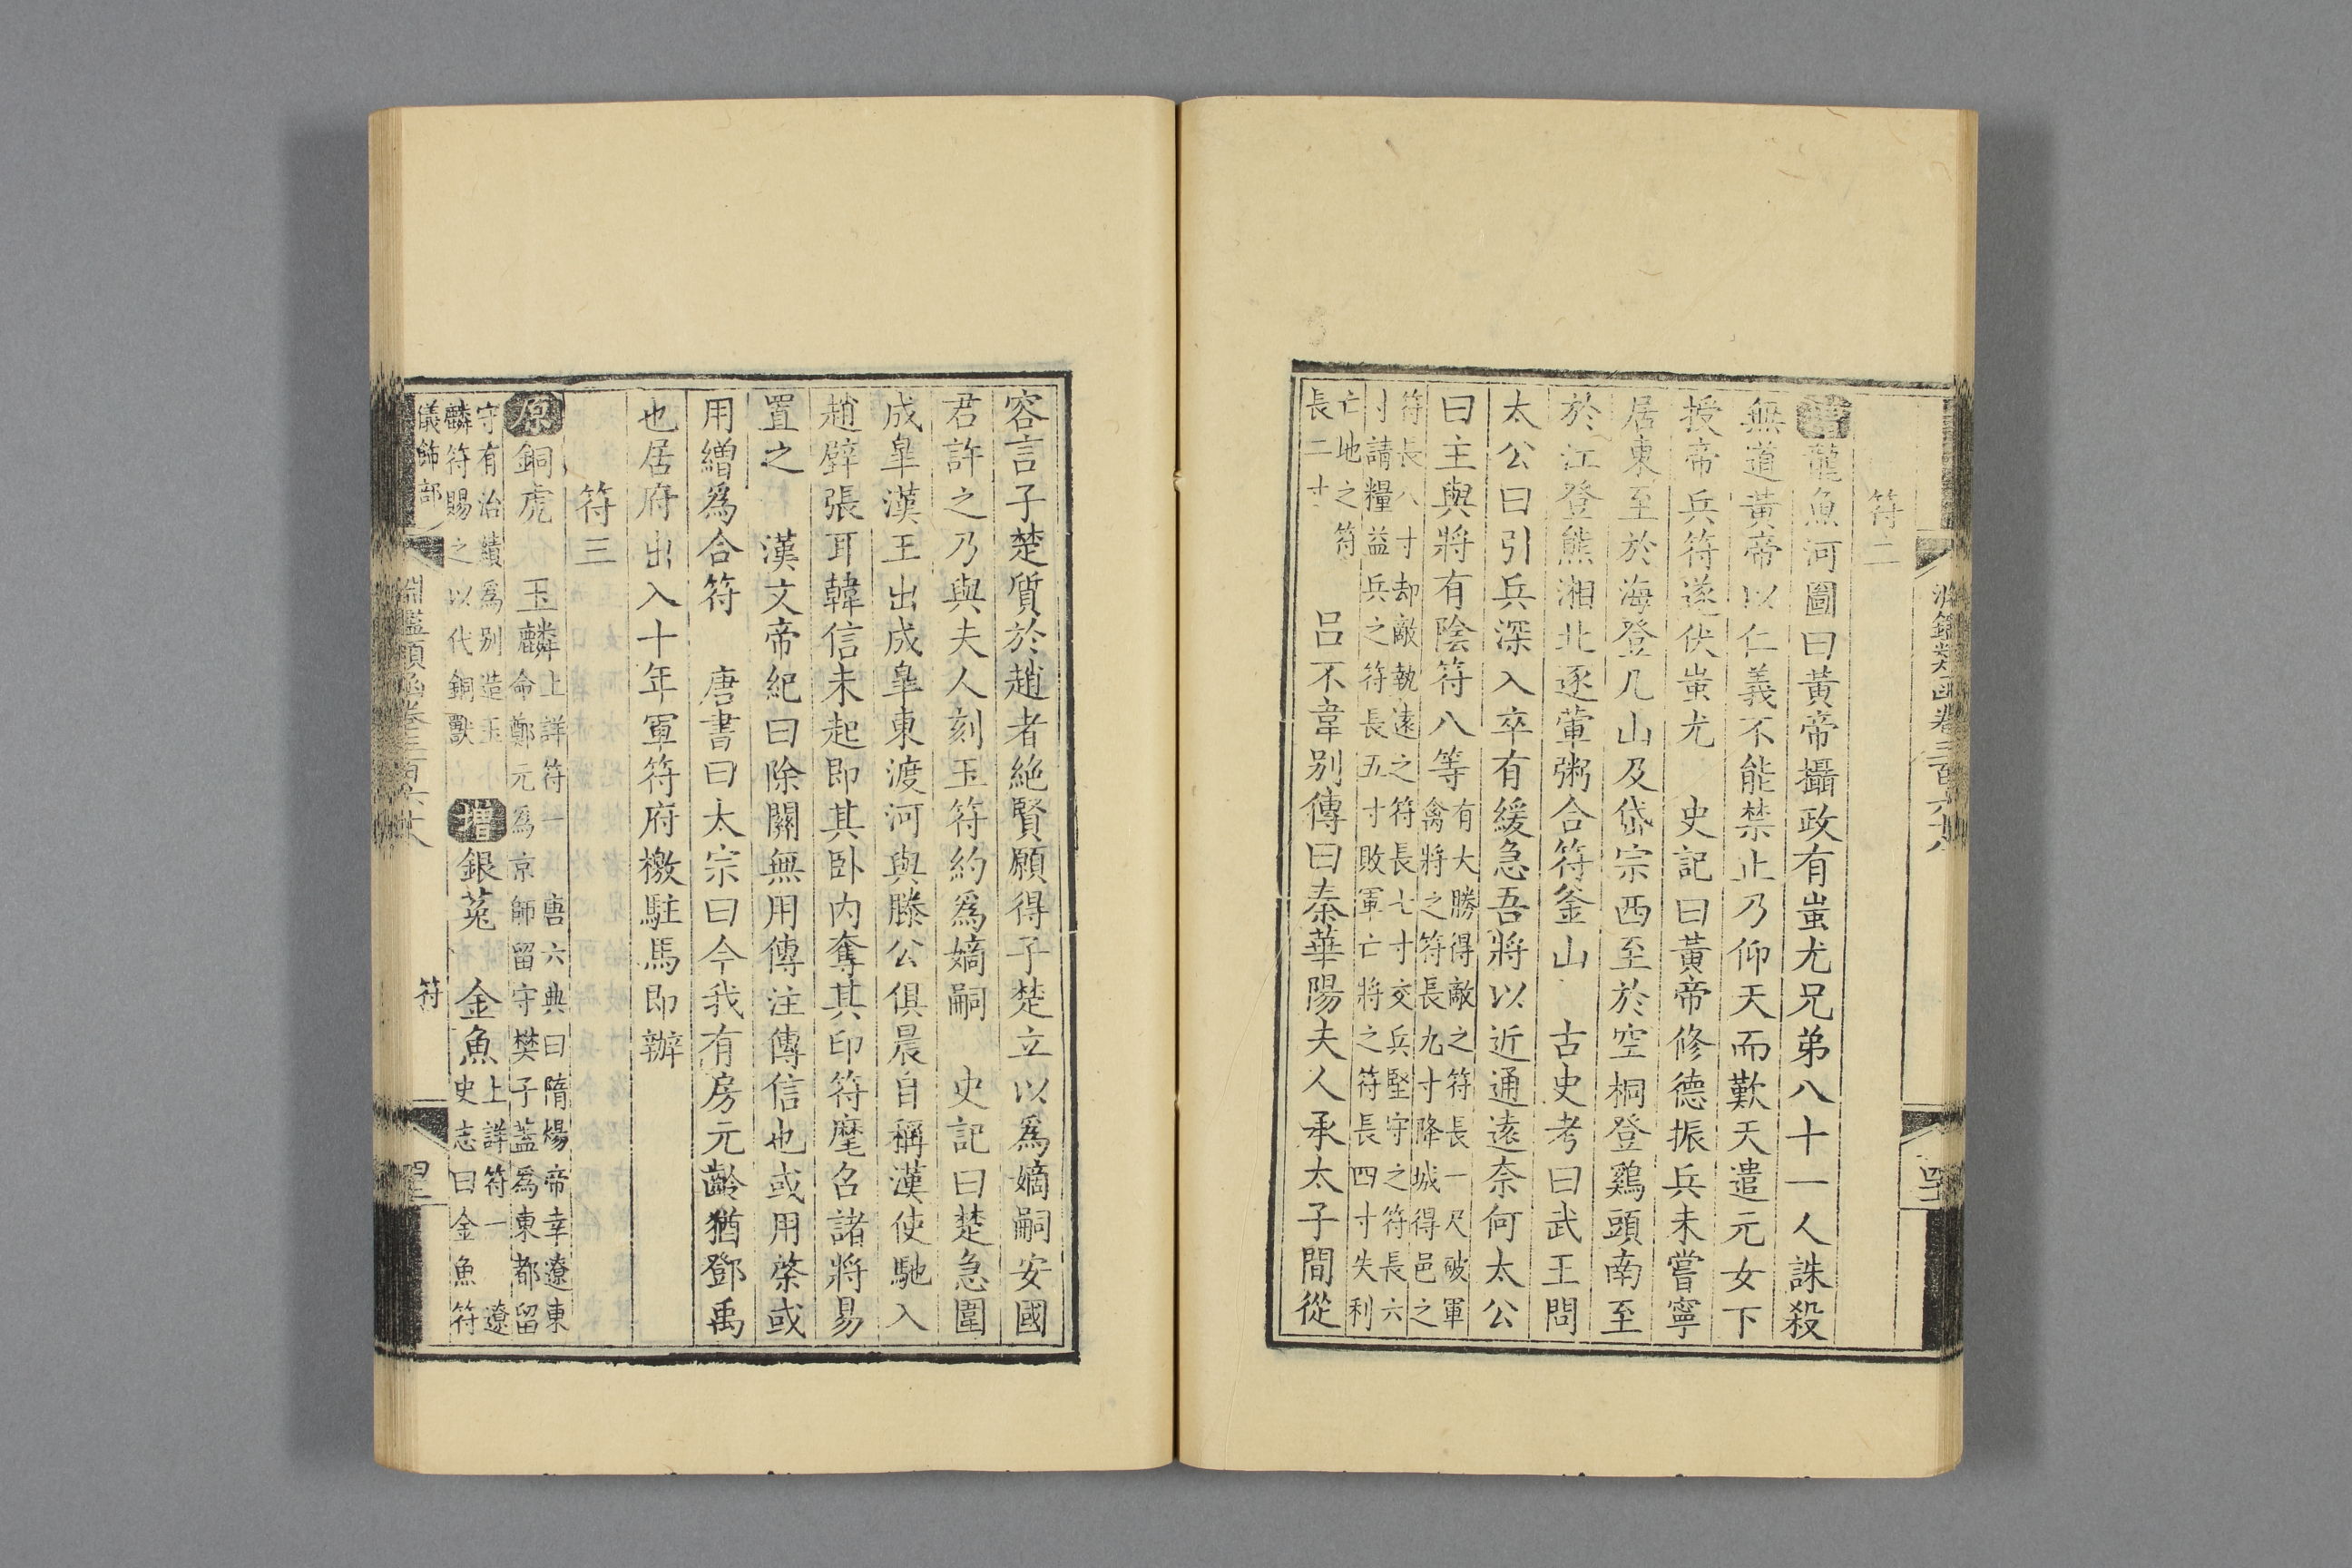 符二
增龍魚河圖曰黃帝攝政有蚩尤兄弟八十一人誅殺
無道黃帝以仁義不能禁止乃仰天而歎天遣元女下
授帝兵符遂伏蚩尤　史記曰黃帝修德振兵未嘗寧
居東至於海登几山及岱宗西至於空桐登鷄頭南至
於江登熊湘北逐葷粥合符釜山　古史考曰武王問
太公曰引兵深入卒有緩急吾將以近通遠奈何太公
曰主與將有陰符八等
有大勝得敵之符長一尺破軍
禽將之符長九寸降城得邑之
符長八寸却敵執遠之符長七寸交兵堅守之符長六
寸請糧益兵之符長五寸敗軍亡將之符長四寸失利
亡地之符
長二寸
呂不韋別傳曰秦華陽夫人承太子間從
淵鑑類函卷三百六十八
容言子楚質於趙者絶賢願得子楚立以爲嫡嗣安國
君許之乃與夫人刻玉符約爲嫡嗣　史記曰楚急圍
成臯漢王出成臯東渡河與滕公俱晨自稱漢使馳入
趙壁張耳韓信未起即其卧内奪其印符麾召諸將易
置之　漢文帝紀曰除關無用傳注傳信也或用棨或
用繒爲合符　唐書曰太宗曰今我有房元齡猶鄧禹
也居府出入十年軍符府檄駐馬即辦
符三
原銅虎　玉麟
上詳符一　唐六典曰隋煬帝幸遼東
命鄭元爲京師留守樊子蓋爲東都留
守有治績爲別造玉
麟符賜之以代銅獸
增銀菟　金魚
上詳符一　遼
史志曰金魚符
儀飾部
淵鑑類函卷三百六十八
符